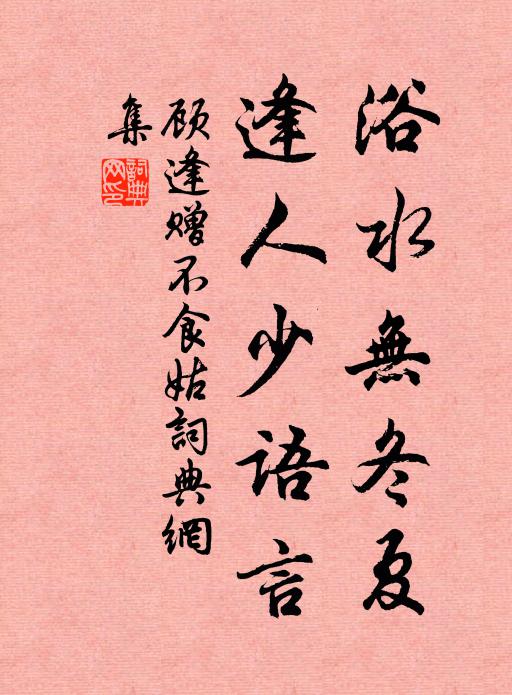 浴水無冬夏
逢人少語言
顾逢赠不食姑詞典網
集
詞典
网印